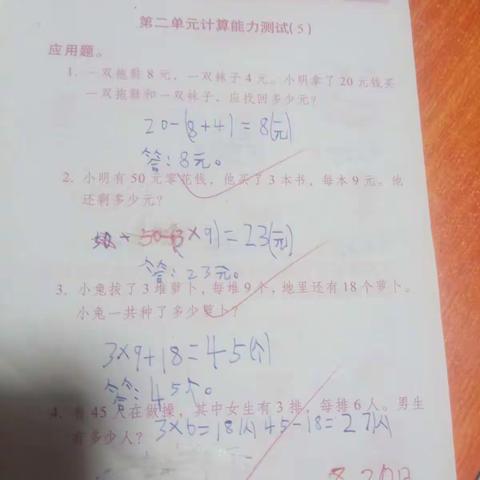 第二单元计算能力测试(5)
应用题。
1. 一双拖鞋8元，一双袜子4元。小明拿了20元钱买
一双拖鞋和一双袜子，应找回多少元？
20-(8+4)=8(元)
答：8元。
2. 小明有50元零花钱，他买了3本书，每本9元。他
还剩多少元？
50-(3×9)=23(元)
答：23元。
3. 小兔拔了3堆萝卜，每堆9个，地里还有18个萝卜。
小兔一共种了多少萝卜？
3×9+18=45(个)
答：45个。
4. 有45人在做操，其中女生有3排，每排6人。男生
有多少人？ 3×6=18(人) 45-18=27(人)